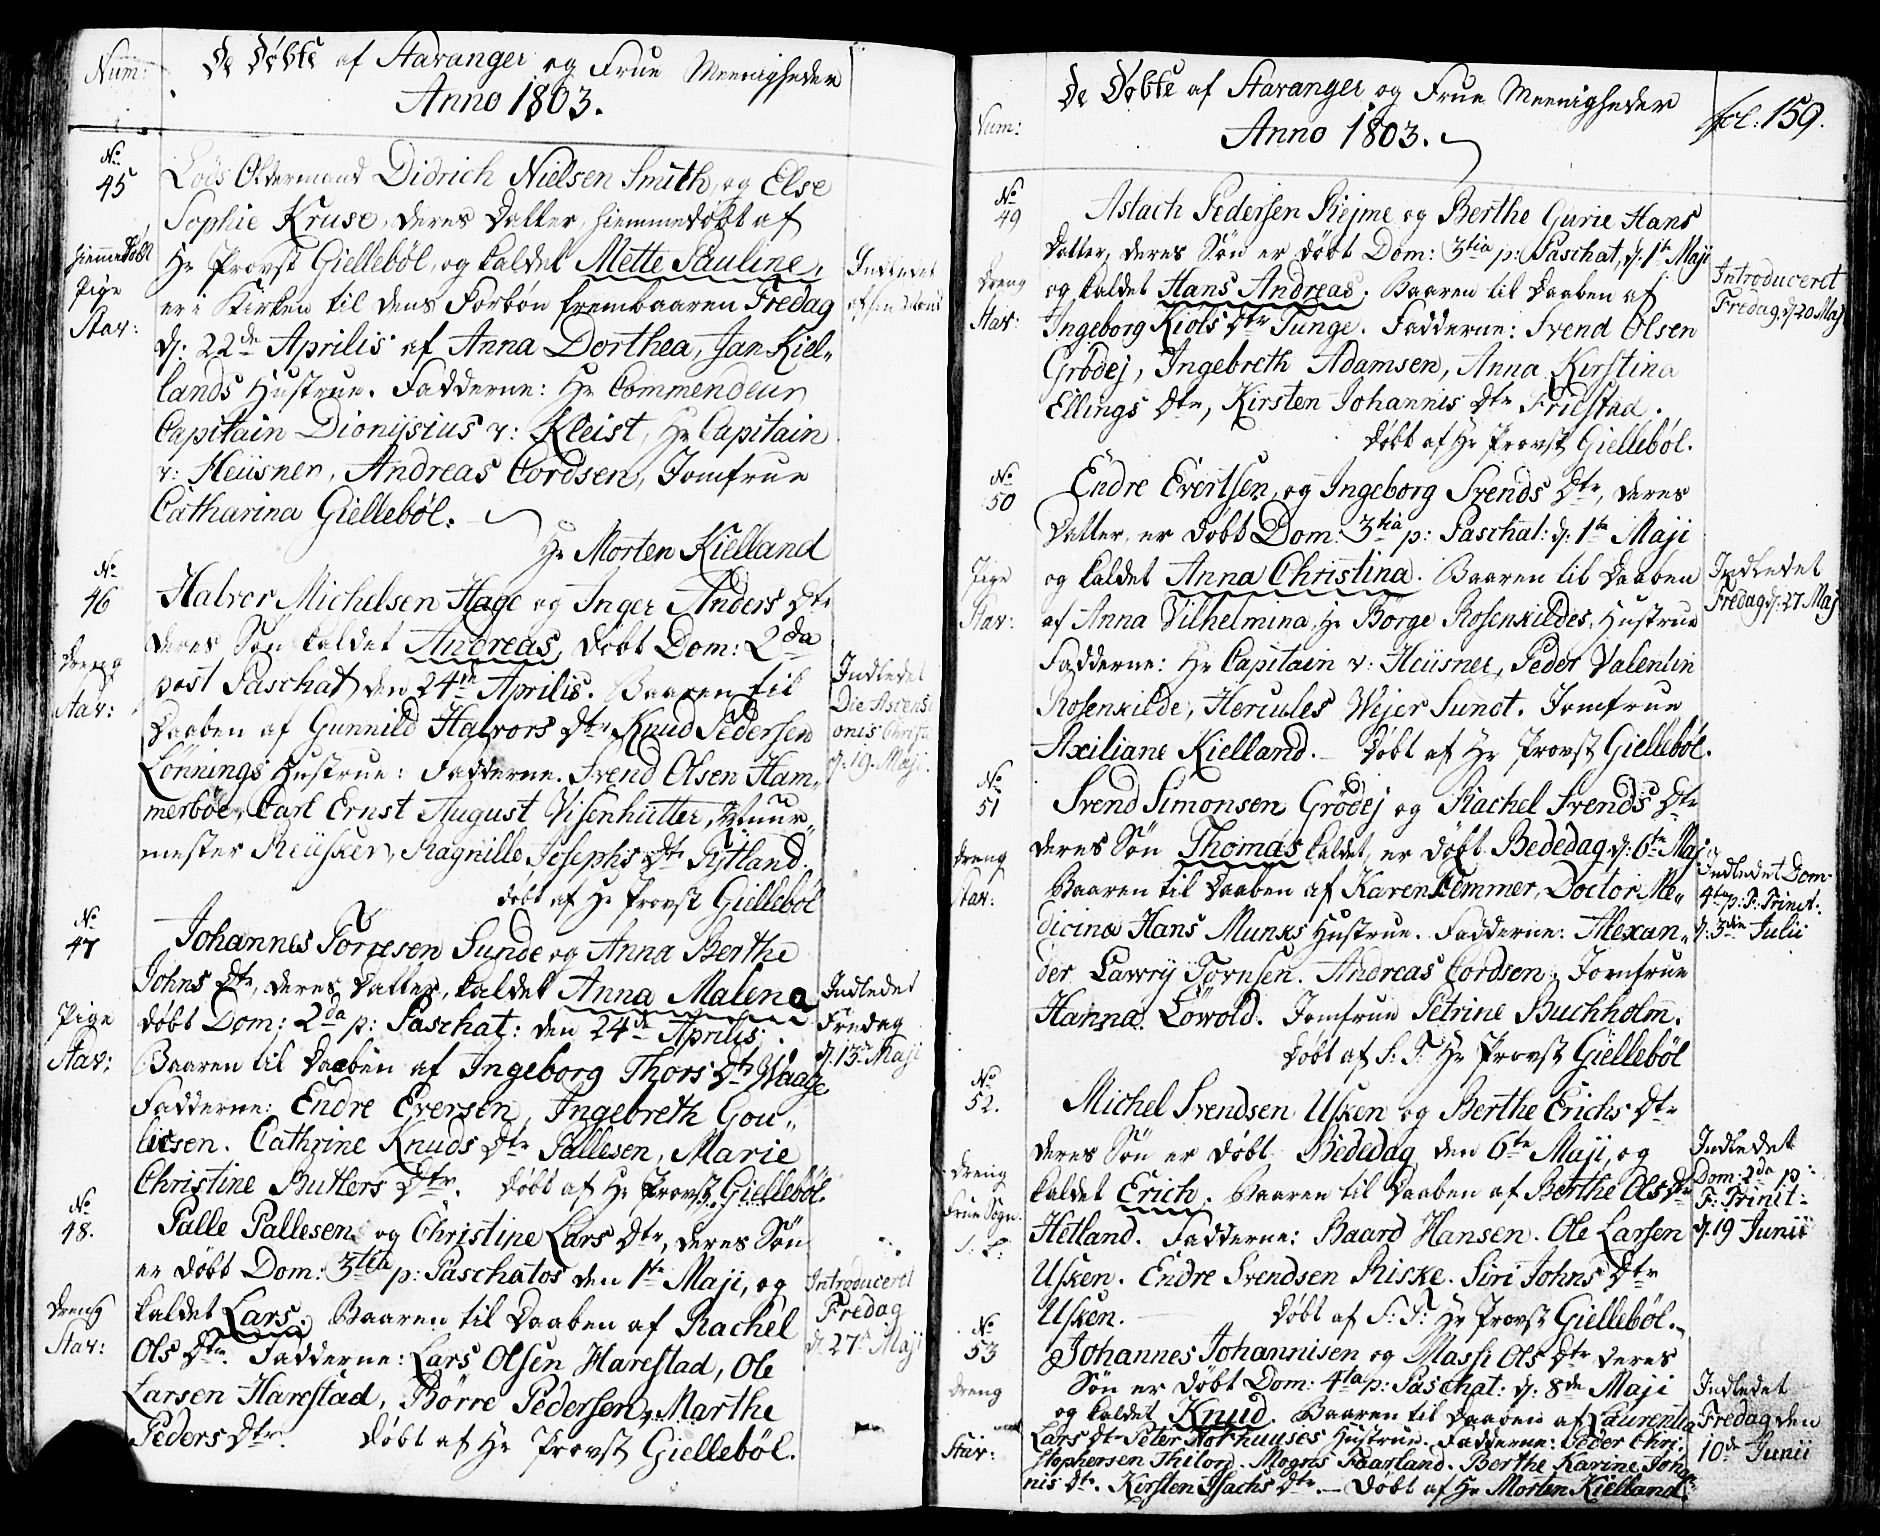 Num:
De Døbte af Stavanger og Frue Meenigheder
Anno 1803.
No
45
Hiemmedøbt
Pige
Stav:
Lods Oldermand Didrich Nielsen Smith, og Else
Sophie Kruse, deres Datter, hiemmedøbt af
Hr Provst Gielleböl, og kaldet Mette Pauline,
er i Kirken til dens Forbøn frembaaren Fredag
d: 22de Aprilis af Anna Dorthea, Jan Kiel-
lands Hustrue. Fadderne: Hr Commendeur
Capitain Dionysius v: Kleist, Hr Capitain
v: Heüsner, Andreas Cordsen, Jomfrue
Catharina Gielleböl.
Hr Morten Kielland
Indledet
No
46
Dreng
Stav:
Halvor Michelsen Hage og Inger Anders Dtr
deres Søn kaldet Andreas, døbt Dom: 2da
post Paschat, den 24de Aprilis. Baaren til
Daaben af Gunnild Halvors Dtr Knud Pedersen
Lönnings Hustrue: Fadderne. Svend Olsen Ham-
merböe, Carl Ernst August Visenhütter, Muur-
mester Reüsker, Ragnille Josephs Dtr Tytland.
døbt af Hr Provst Gielleböl
Indledet
Die Ascensi
onis Christi
d: 19. Maji.
No
47
Pige
Stav:
Johannes Torgesen Sunde og Anna Berthe
Johns Dtr, deres Datter, kaldet Anna Malena
døbt Dom: 2da p: Paschat: den 24de Aprilis.
Baaren til Daaben af Ingeborg Thors Dtr Waage
Fadderne: Endre Eversen, Ingebreth Gou-
licsen. Cathrine Knuds Dtr Pallesen, Marie
Christine Butlers Dtr. døbt af Hr Provst Gielleböl
Indledet
Fredag
d. 13de Maji
No
48.
Dreng
Stav:
Palle Pallesen og Christine Lars Dtr, deres Søn
er døbt Dom: 3tia p: Paschatos den 1ste Maji, og
kaldet Lars. Baaren til Daaben af Rachel
Ols Dtr. Fadderne: Lars Olsen Harestad, Ole
Larsen Harestad, Börre Pedersen, Marthe
Peders Dtr. døbt af Hr Provst Gielleböl.
Introduceret
Fredag
d. 27de Maji
Num:
De Døbte af Stavanger og Frue Meenigheder
Anno 1803.
fol: 159.
No
49
Dreng
Stav:
Aslach Pedersen Riejme og Berthe Gurie Hans
Datter, deres Søn er døbt Dom: 3tia p: Paschat, d: 1te Maji
og kaldet Hans Andreas. Baaren til Daaben af
Ingeborg Kiöls Dtr Tunge. Fadderne: Svend Olsen
Grödej, Ingebreth Adamsen, Anna Kirstina
Ellings Dtr, Kirsten Johannis Dtr Friestad.
døbt af Hr Provst Gielleböl.
Introduceret
Fredag d. 20 Maj
No
50
Pige
Stav:
Endre Evertsen, og Ingeborg Svends Dtr, deres
Datter, er døbt Dom: 3tia p: Paschat: d: 1te Maji
og kaldet Anna Christina. Baaren til Daaben
af Anna Vilhelmina, Hr Börge Rosenkildes, Hustrue
Fadderne: Hr Capitain v: Heüsner, Peder Valentin
Rosenkilde, Hercules Wejer Sundt. Jomfrue
Axiliane Kielland. døbt af Hr Provst Gielleböl.
Indledet
Fredag d. 27 Maj
No
51
Dreng
Stav:
Svend Simonsen Grödej og Rachel Svends Dtr
deres Søn Thomas kaldet, er døbt Bededag d: 6te Maj
Baaren til Daaben af Karen Temmer, Doctor Me-
dicinæ Hans Munks Hustrue. Fadderne: Alexan-
der Lawry Tornsen. Andreas Cordsen. Jomfrue
Hanna Löwold. Jomfrue Petrine Buchholm.
døbt af S: T: Hr Provst Gielleböl
Indledet Dom:
4ta p: F: Trinit:
d: 3die Julii
No
52.
Dreng
Frue Sogn.
Michel Svendsen Usken og Berthe Erichs Dtr
deres Søn er døbt Bededag den 6te Maji, og
kaldet Erich. Baaren til Daaben af Berthe Ols Dtr
Hetland. Fadderne: Baard Hansen. Ole Larsen
Usken. Endre Svendsen Riske. Siri Johns Dtr
Usken. døbt af S: T: Hr Provst Gielleböl.
Indledet
Dom: 2da p:
F: Trinit:
d. 19 Junii
No
53
Dreng
Stav:
Johannes Johannisen og Massi Ols Dtr deres
Søn er døbt Dom: 4ta p: Paschat: d: 8de Maji
og kaldet Knud. Baaren til Daaben af Laurentia
Lars Dtr Peter Norhuuses Hustrue. Fadderne: Peder Chri-
stophersen Thilord. Mogns Faarland. Berthe Karine Johan-
nis Dtr. Kirsten Isachs Dtr. døbt af Hr Morten Kielland.
Indledet
Fredag den
10de Junii